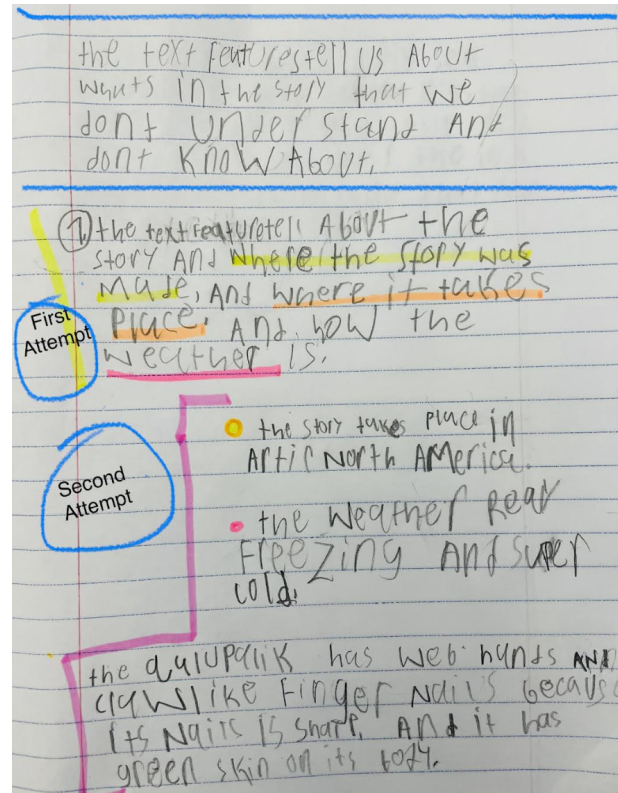 the text featurestell us About
whats in the story that we
dont Understand And
dont know About.
① the text featuretell About the
story And where the story was
made, And where it takes
Place. And how the
weather is.
First
Attempt
Second
Attempt
the story takes place in
Artic North America.
the weather Reay
Freezing And super
cold.
the qalupalik has web hands AND
claw like Finger Nails becaus
Its Nails Is sharp, And it has
green skin on its body.